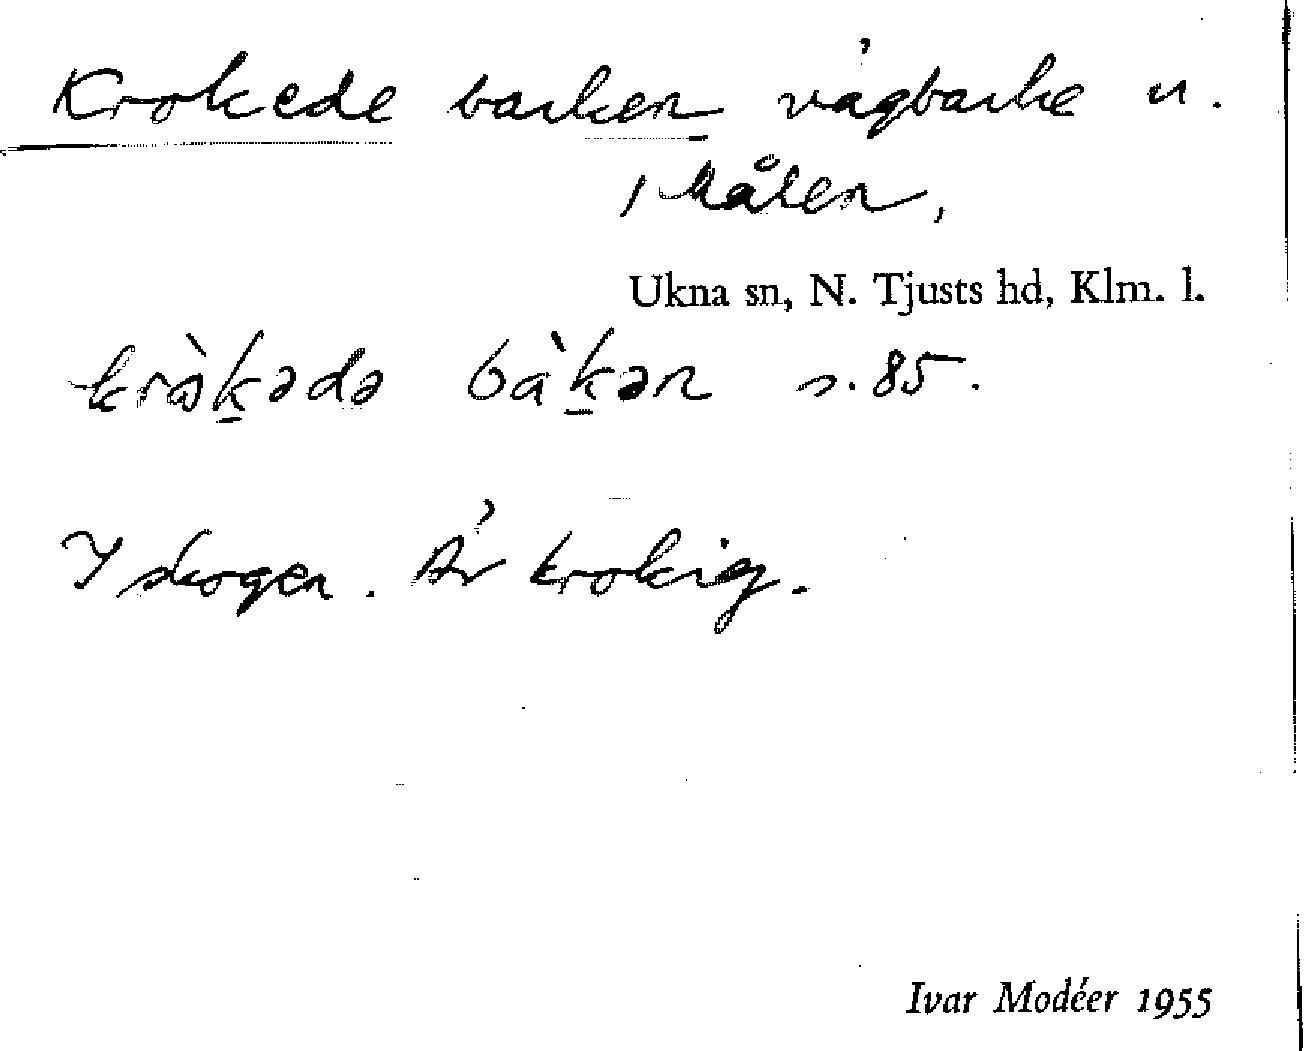 Krokede backen vägbacke n.
i Målen,
Ukna sn, N. Tjusts hd, Klm. l.
kròk̲ədə bàk̲ən s. 85.
I skogen. Är krokig.
Ivar Modéer 1955